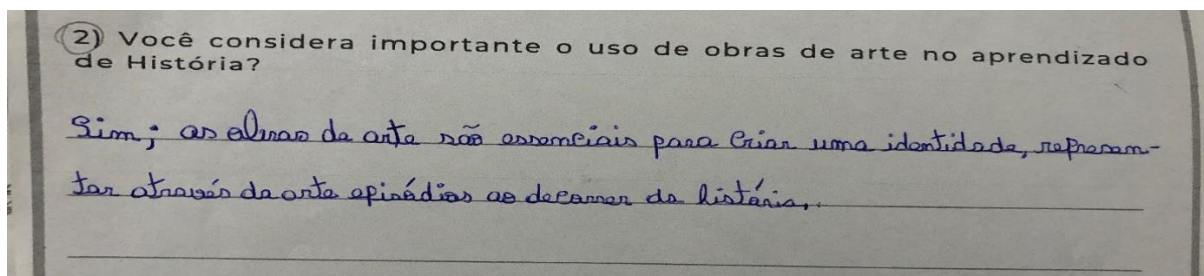 2) Você considera importante o uso de obras de arte no aprendizado
de História?
Sim; as obras de arte são essenciais para criar uma identidade, represen-
tar através da arte episódios ao decorrer da história.